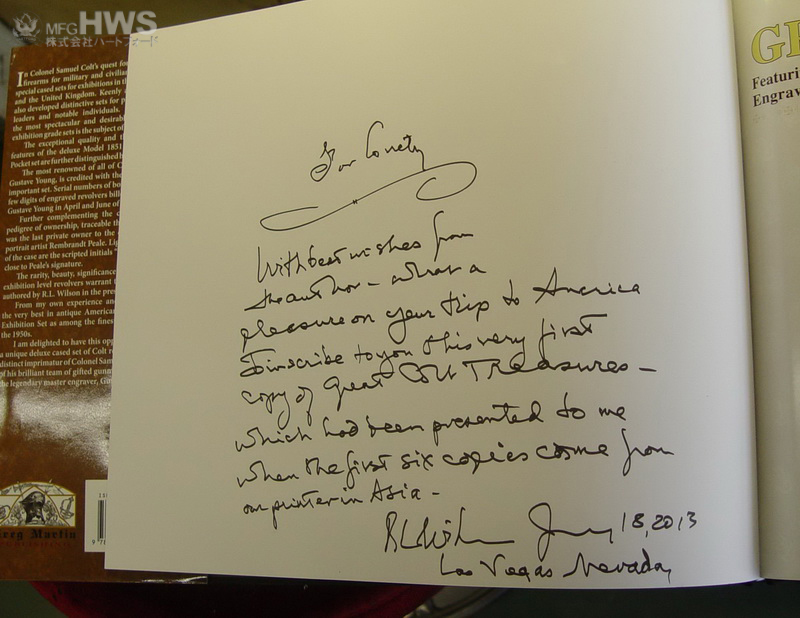 MFG HWS
株式会社ハートフォード
In Colonel Samuel Colt's quest fo
firearms for military and civilia
special cased sets for exhibitions in th
and the United Kingdom. Keenly
also developed distinctive sets for p
leaders and notable individuals.
the most spectacular and desirab
exhibition grade sets is the subject of
The exceptional quality and
features of the deluxe Model 1851
Pocket set are further distinguished b
The most renowned of all of C
Gustave Young, is credited with the
important set. Serial numbers of bo
few digits of engraved revolvers bill
Gustave Young in April and June of
Further complementing the c
pedigree of ownership, traceable th
was the last private owner to the
portrait artist Rembrandt Peale. Lig
of the case are the scripted initials "
close to Peale's signature.
The rarity, beauty, significance
exhibition level revolvers warrant t
authored by R.L. Wilson in the pre
From my own experience and
the very best in antique American
Exhibition Set as among the fines
the 1950s.
I am delighted to have this opp
a unique deluxe cased set of Colt re
distinct imprimatur of Colonel Sam
of his brilliant team of gifted gunm
the legendary master engraver, Gu
Greg Martin
For
With best wishes from
the author - what a
pleasure on your trip to America
to inscribe to you this very first
copy of Great Colt Treasures -
which had been presented to me
when the first six copies come from
our printer in Asia -
RL Wilson January 18, 2013
Las Vegas Nevada
GR
Featuri
Engrav